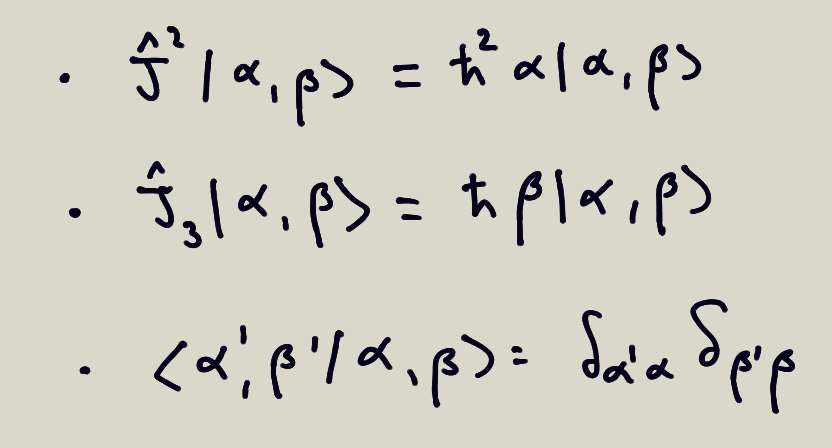 · Ĵ² |α, β⟩ = ħ² α |α, β⟩
· Ĵ₃ |α, β⟩ = ħ β |α, β⟩
· ⟨α', β' | α, β⟩ = δ_{α'α} δ_{β'β}